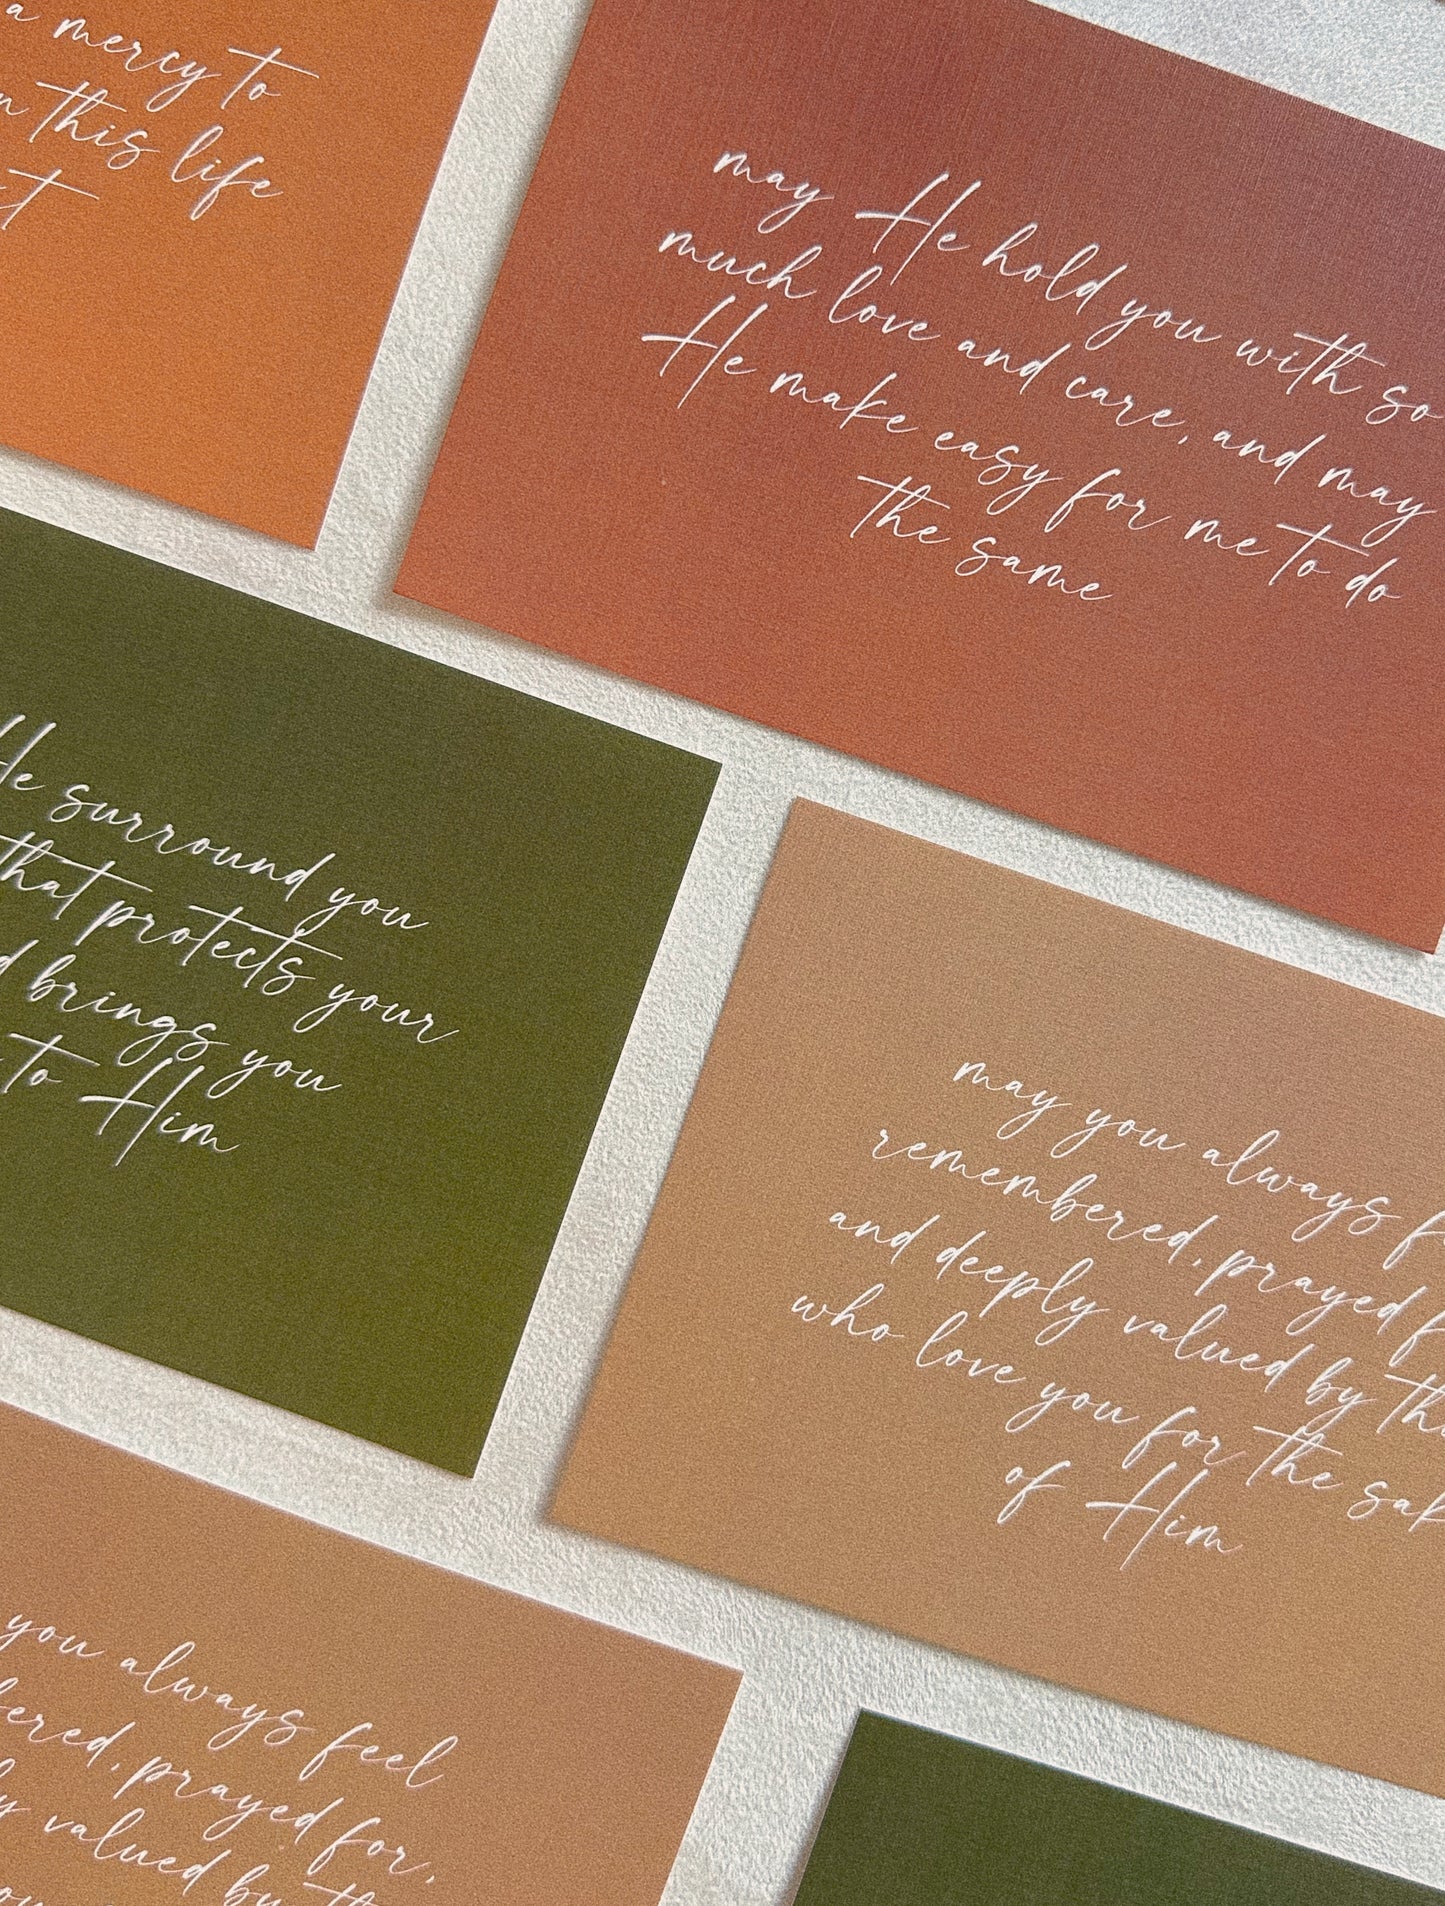 a mercy to
this life
may He hold you with so
much love and care, and may
He make easy for me to do
the same
He surround you
that protects your
brings you
to Him
may you always
remembered, prayed
and deeply valued by
who love you for the
of Him
you always feel
prayed for,
valued by